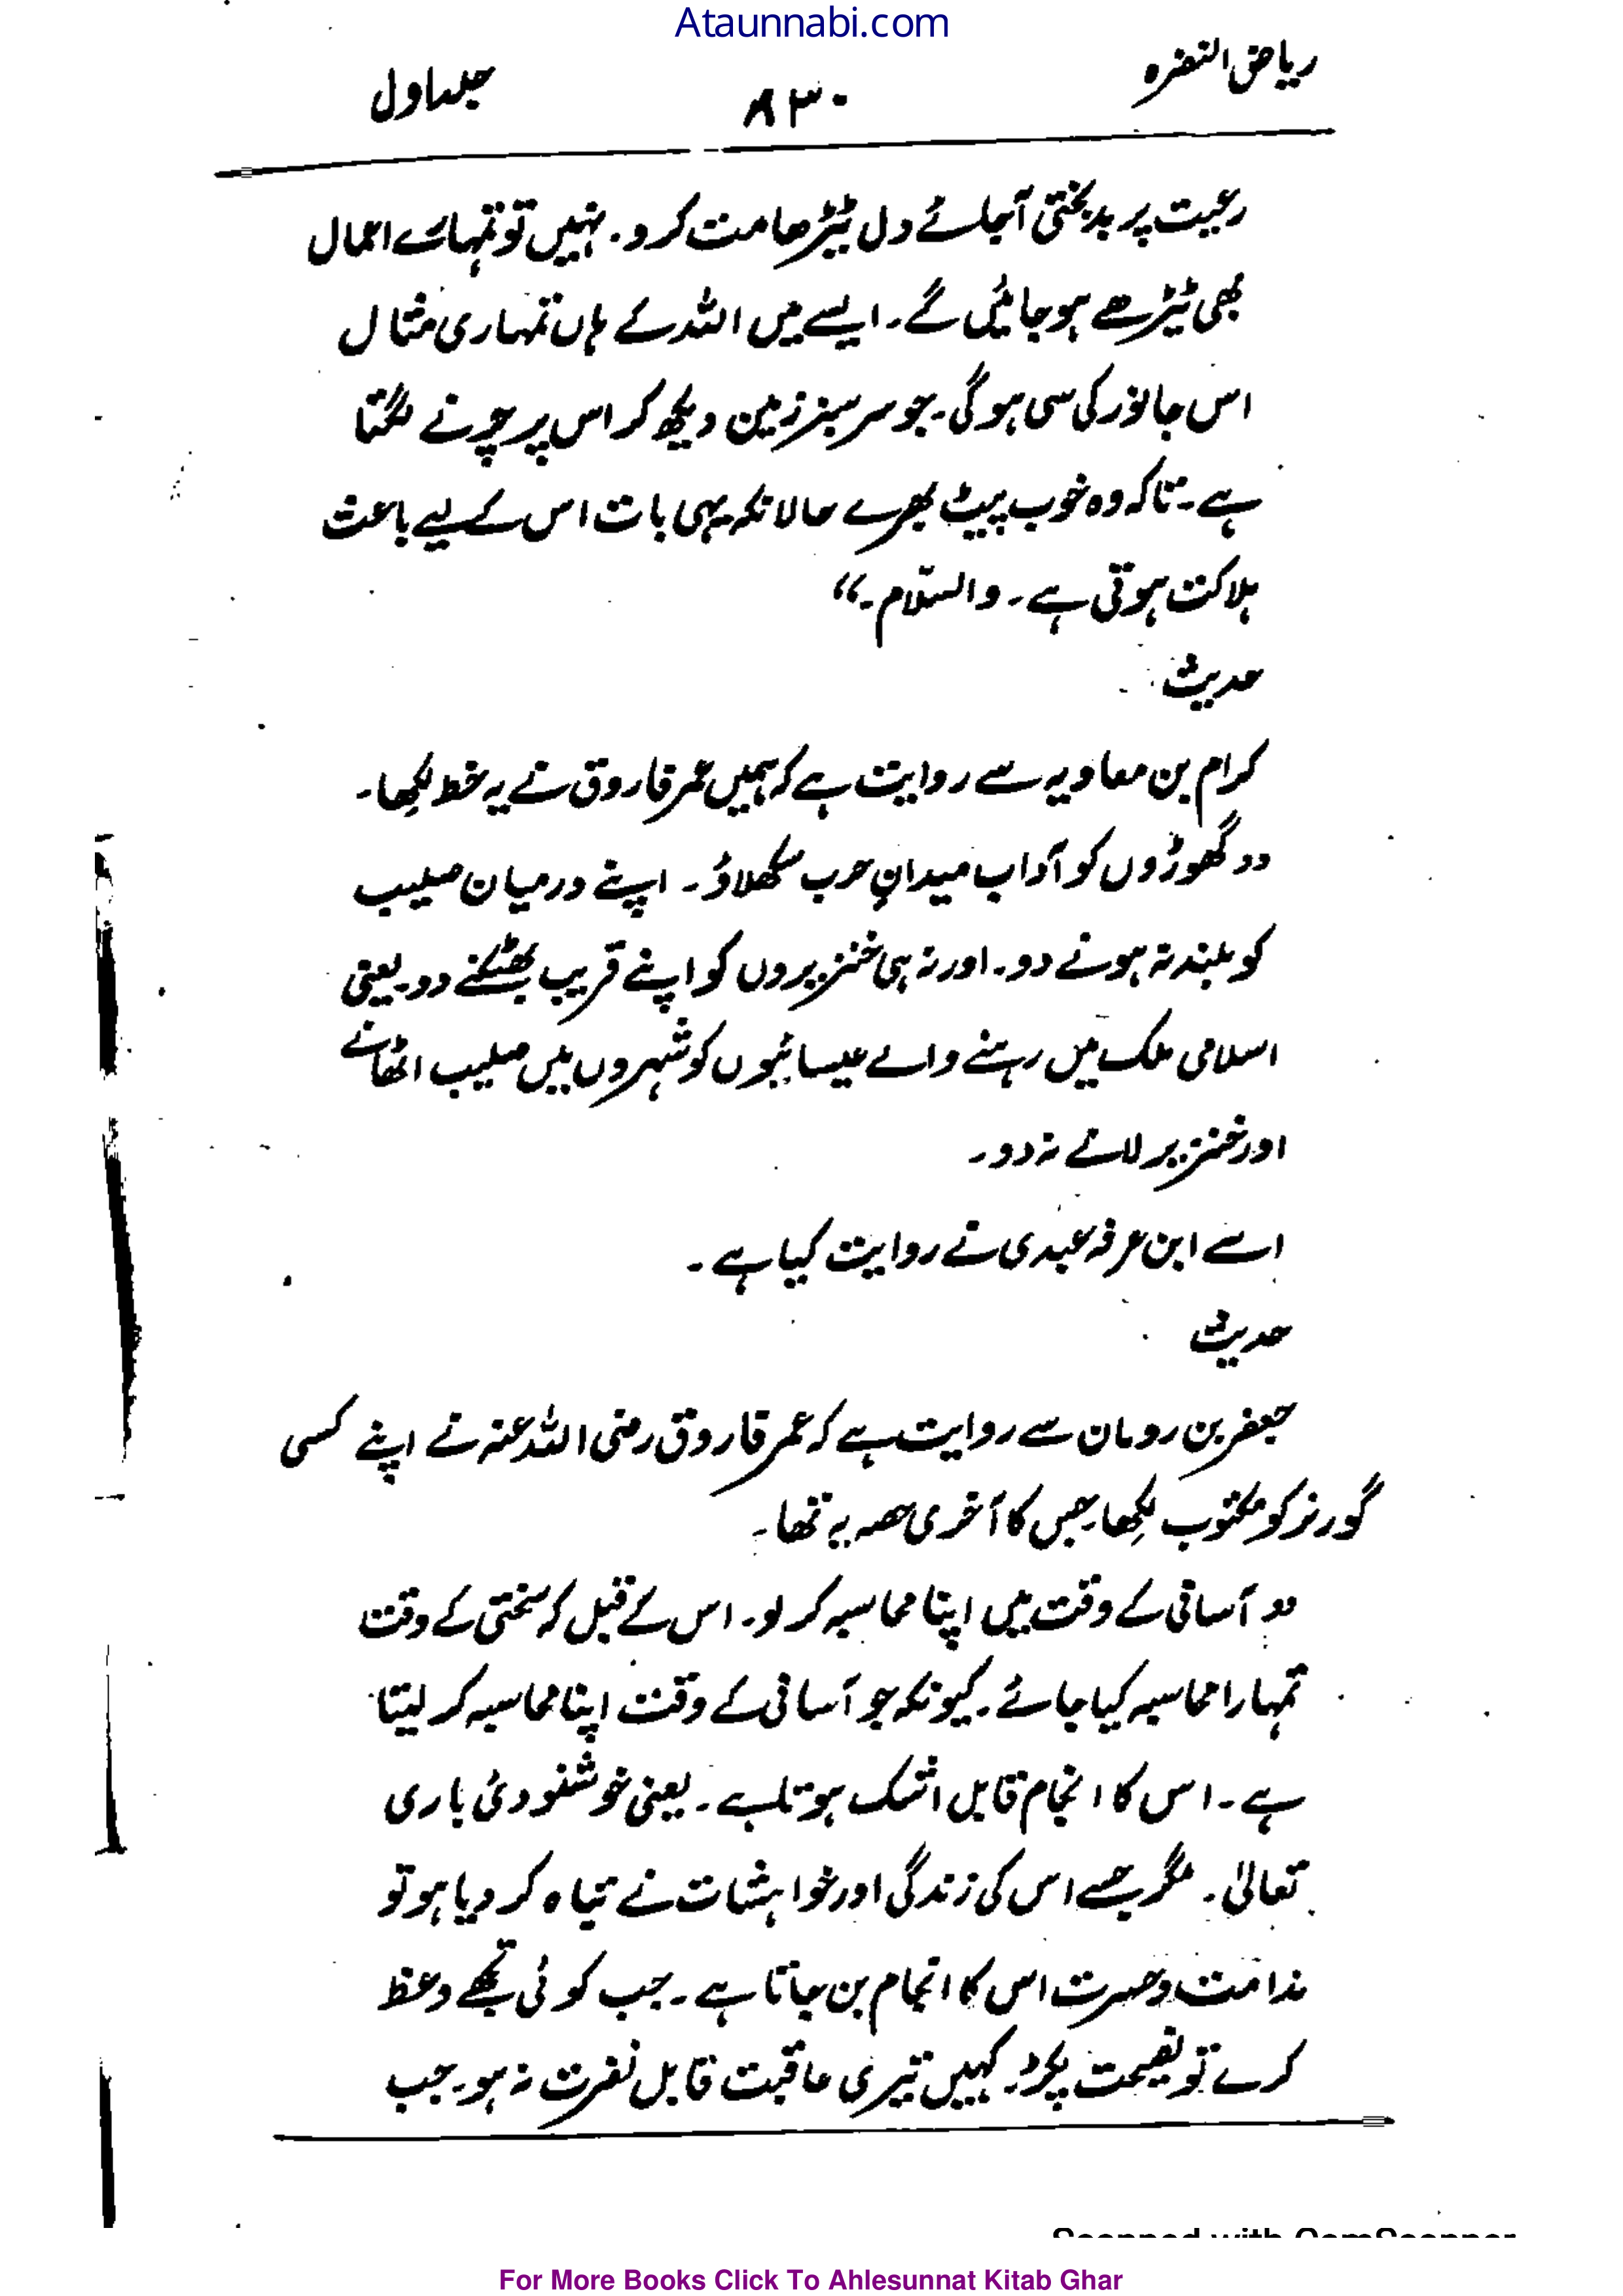 Ataunnabi.com
ریاض النضرہ ۸۳۰ جلد اول
رعیت پر بدبختی آجائے دل ٹیڑھا مت کرو۔ نہیں تو تمہارے اعمال
بھی ٹیڑھے ہو جائیں گے۔ ایسے میں اللہ کے ہاں تمہاری مثال
اس جانور کی سی ہو گی۔ جو سرسبز زمین دیکھ کر اس پر چرنے لگتا
ہے۔ تاکہ وہ خوب پیٹ بھرے حالانکہ یہی بات اس کے لیے باعث
ہلاکت ہوتی ہے۔ والسّلام۔“
حدیث
کرام بن معاویہ سے روایت ہے کہ ہمیں عمر فاروق نے یہ خط لکھا۔
”گھوڑوں کو آداب میدانِ حرب سکھلاؤ۔ اپنے درمیان صلیب
کو بلند نہ ہونے دو۔ اور نہ ہی خنزیروں کو اپنے قریب بھٹکنے دو۔ یعنی
اسلامی ملک میں رہنے والے عیسائیوں کو شہروں میں صلیب اٹھانے
اور خنزیر لانے نہ دو۔
اسے ابن عرفہ عبدی نے روایت کیا ہے۔
حدیث
جعفر بن رومان سے روایت ہے کہ عمر فاروق رضی اللہ عنہ نے اپنے کسی
گورنر کو مکتوب لکھا۔ جس کا آخری حصہ یہ تھا۔
”آسانی کے وقت میں اپنا محاسبہ کر لو۔ اس کے قبل کہ سختی کے وقت
تمہارا محاسبہ کیا جائے۔ کیونکہ جو آسانی کے وقت اپنا محاسبہ کر لیتا
ہے۔ اس کا انجام قابل اشک ہوتا ہے۔ یعنی خوشنودئ باری
تعالیٰ۔ مگر جسے اس کی زندگی اور خواہشات نے تباہ کر دیا ہو تو
ندامت و حسرت اس کا انجام بن جاتا ہے۔ جب کوئی تجھے وعظ
کرے تو نصیحت پکڑ۔ کہیں تیری عاقبت قابل نفرت نہ ہو۔ جب
Scanned with CamScanner
For More Books Click To Ahlesunnat Kitab Ghar